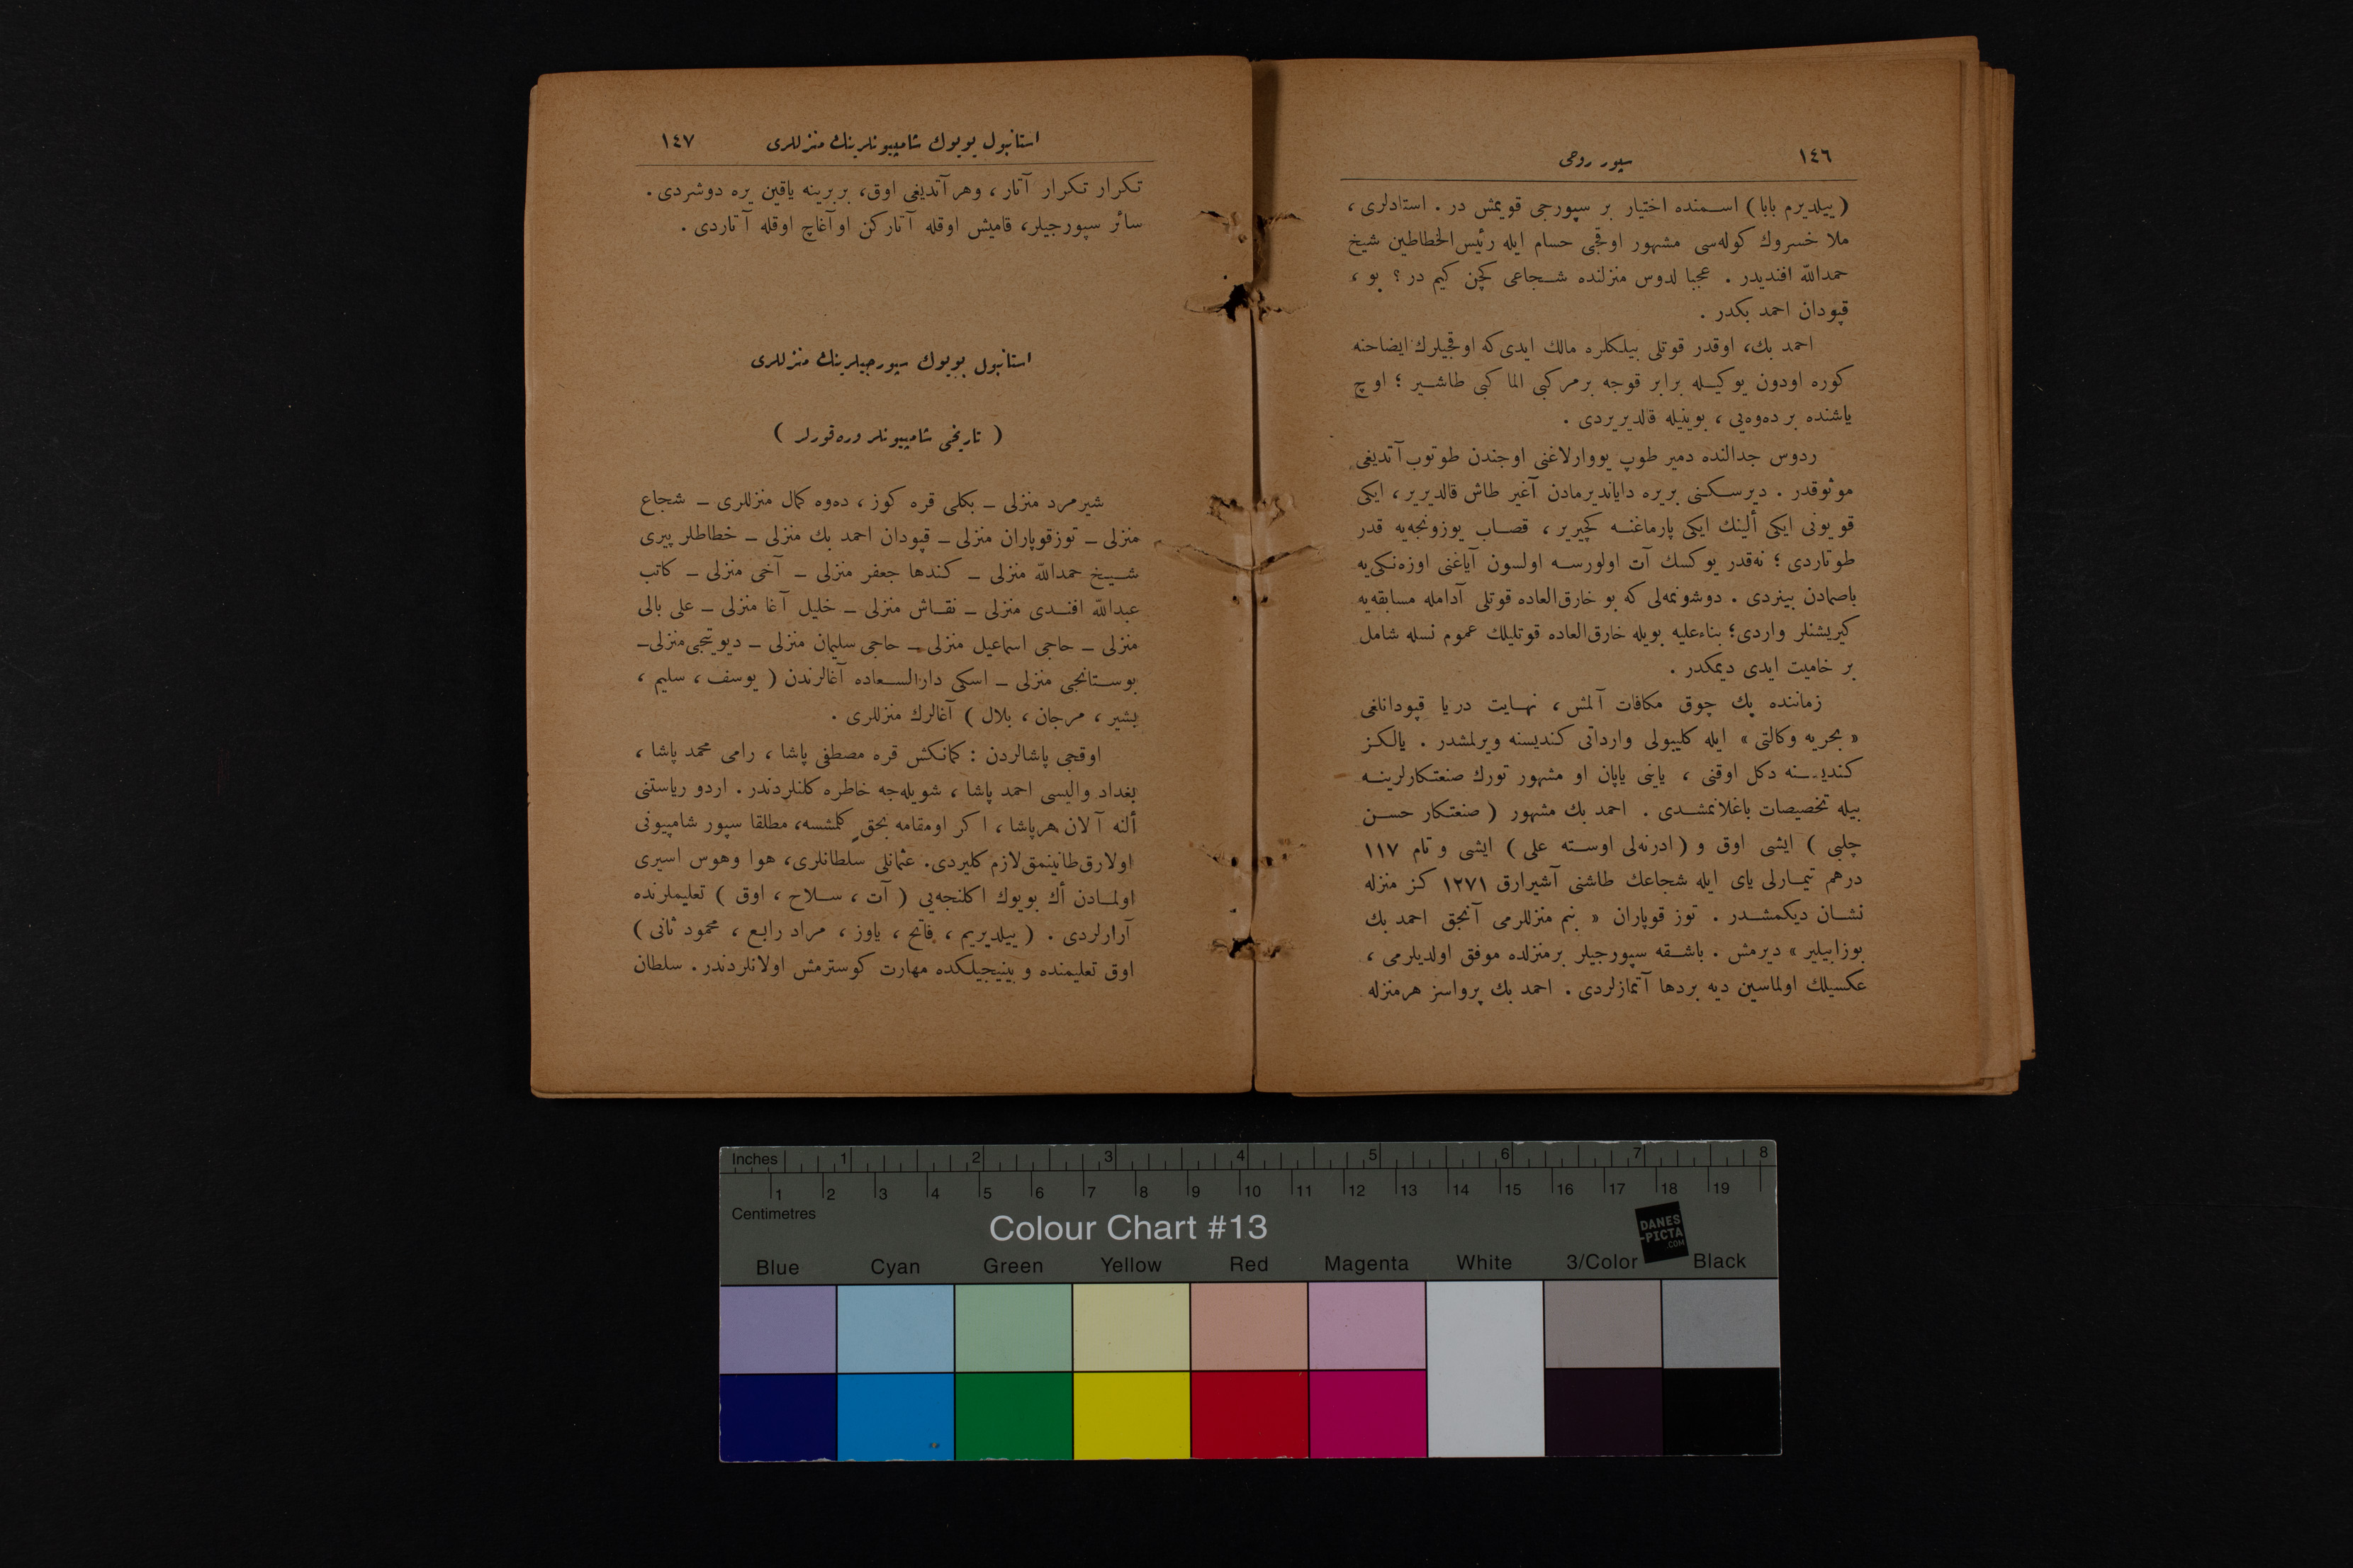 ١٤٦
سپور روحی
( ییلدیرم بابا ) اسمنده اختیار بر سپورجی قویمش در . استادلری ،
ملا خسروك كوله‌سی مشهور اوقجی حسام ایله رئیس‌الخطاطین شیخ
حمدالله افندیدر . عجبا لدوس منزلنده شجاعی كچن كیم در ؟ بو ،
قپودان احمد بكدر .
احمد بك، اوقدر قوتلی بیلكلره مالك ایدی‌كه اوقجیلرك ایضاحنه
كوره اودون یوكیله برابر قوجه برمركبی الما كبی طاشیر ؛ اوچ
یاشنده بر ده‌وه‌یی ، بوینیله قالدیریردی .
ردوس جدالنده دمیر طوپ یووارلاغنی اوجندن طوتوب آتدیغی
موثوقدر . دیرسكنی بریره دایاندیرمادن آغیر طاش قالدیریر ، ایكی
قویونی ایكی ألینك ایكی پارماغنه كچیریر ، قصاب یوزونجه‌یه قدر
طوتاردی ؛ نه‌قدر یوكسك آت اولورسه اولسون آیاغنی اوزه‌نكی‌یه
باصمادن بینردی . دوشونمه‌لی كه بو خارق‌العاده قوتلی آدامله مسابقه‌یه
كیریشنلر واردی؛ بناءعلیه بویله خارق‌العاده قوتلیلك عموم نسله شامل
بر خامیت ایدی دیمكدر .
زماننده پك چوق مكافات آلمش ، نهایت دریا قپودانلغی
« بحریه وكالتی » ایله كلیبولی وارداتی كندیسنه ویرلمشدر . یالكز
كندیسنه دكل اوقنی ، یاینی یاپان او مشهور تورك صنعتكارلرینه
بیله تخصیصات باغلانمشدی . احمد بك مشهور ( صنعتكار حسن
چلبی ) ایشی اوق و ( ادرنه‌لی اوسته علی ) ایشی و تام ١١٧
درهم تیمارلی یای ایله شجاعك طاشنی آشیرارق ١٢٧١ كز منزله
نشان دیكمشدر . توز قوپاران « بنم منزللرمی آنجق احمد بك
بوزابیلیر » دیرمش . باشقه سپورجیلر برمنزلده موفق اولدیلرمی ،
عكسیلك اولماسین دیه بردها آتمازلردی . احمد بك پرواسز هرمنزله
استانبول بویوك شامپیونلرینك منزللری
١٤٧
تكرار تكرار آتار ، وهر آتدیغی اوق، بربرینه یاقین یره دوشردی .
سائر سپورجیلر، قامیش اوقله آتاركن او آغاچ اوقله آتاردی .
استانبول بویوك سپورجیلرینك منزللری
( تاریخی شامپیونلر وره‌قورلر )
شیرمرد منزلی ـ بكلی قره كوز ، ده‌وه كمال منزللری ـ شجاع
منزلی ـ توزقوپاران منزلی ـ قپودان احمد بك منزلی ـ خطاطلر پیری
شیخ حمدالله منزلی ـ كندها جعفر منزلی ـ آخی منزلی ـ كاتب
عبدالله افندی منزلی ـ نقاش منزلی ـ خلیل آغا منزلی ـ علی بالی
منزلی ـ حاجی اسماعیل منزلی ـ حاجی سلیمان منزلی ـ دیویتجی‌منزلی ـ
بوستانجی منزلی ـ اسكی دارالسعاده آغالرندن ( یوسف ، سلیم ،
بشیر ، مرجان ، بلال ) آغالرك منزللری .
اوقجی پاشالردن : كمانكش قره مصطفی پاشا ، رامی محمد پاشا ،
بغداد والیسی احمد پاشا ، شویله‌جه خاطره كلنلردندر . اردو ریاستنی
ألنه آلان هرپاشا ، اكر اومقامه بحق كلمشسه، مطلقا سپور شامپیونی
اولارق‌طانینمق‌لازم كلیردی. عثمانلی سلطانلری، هوا وهوس اسیری
اولمادن أك بویوك اكلنجه‌یی ( آت ، سلاح ، اوق ) تعلیملرنده
آرارلردی . ( ییلدیریم ، فاتح ، یاوز ، مراد رابع ، محمود ثانی )
اوق تعلیمنده و بینیجیلكده مهارت كوسترمش اولانلردندر . سلطان
Inches 1 2 3 4 5 6 7 8
1 2 3 4 5 6 7 8 9 10 11 12 13 14 15 16 17 18 19
Centimetres
Colour Chart #13
DANES
-PICTA
.COM
Blue Cyan Green Yellow Red Magenta White 3/Color Black